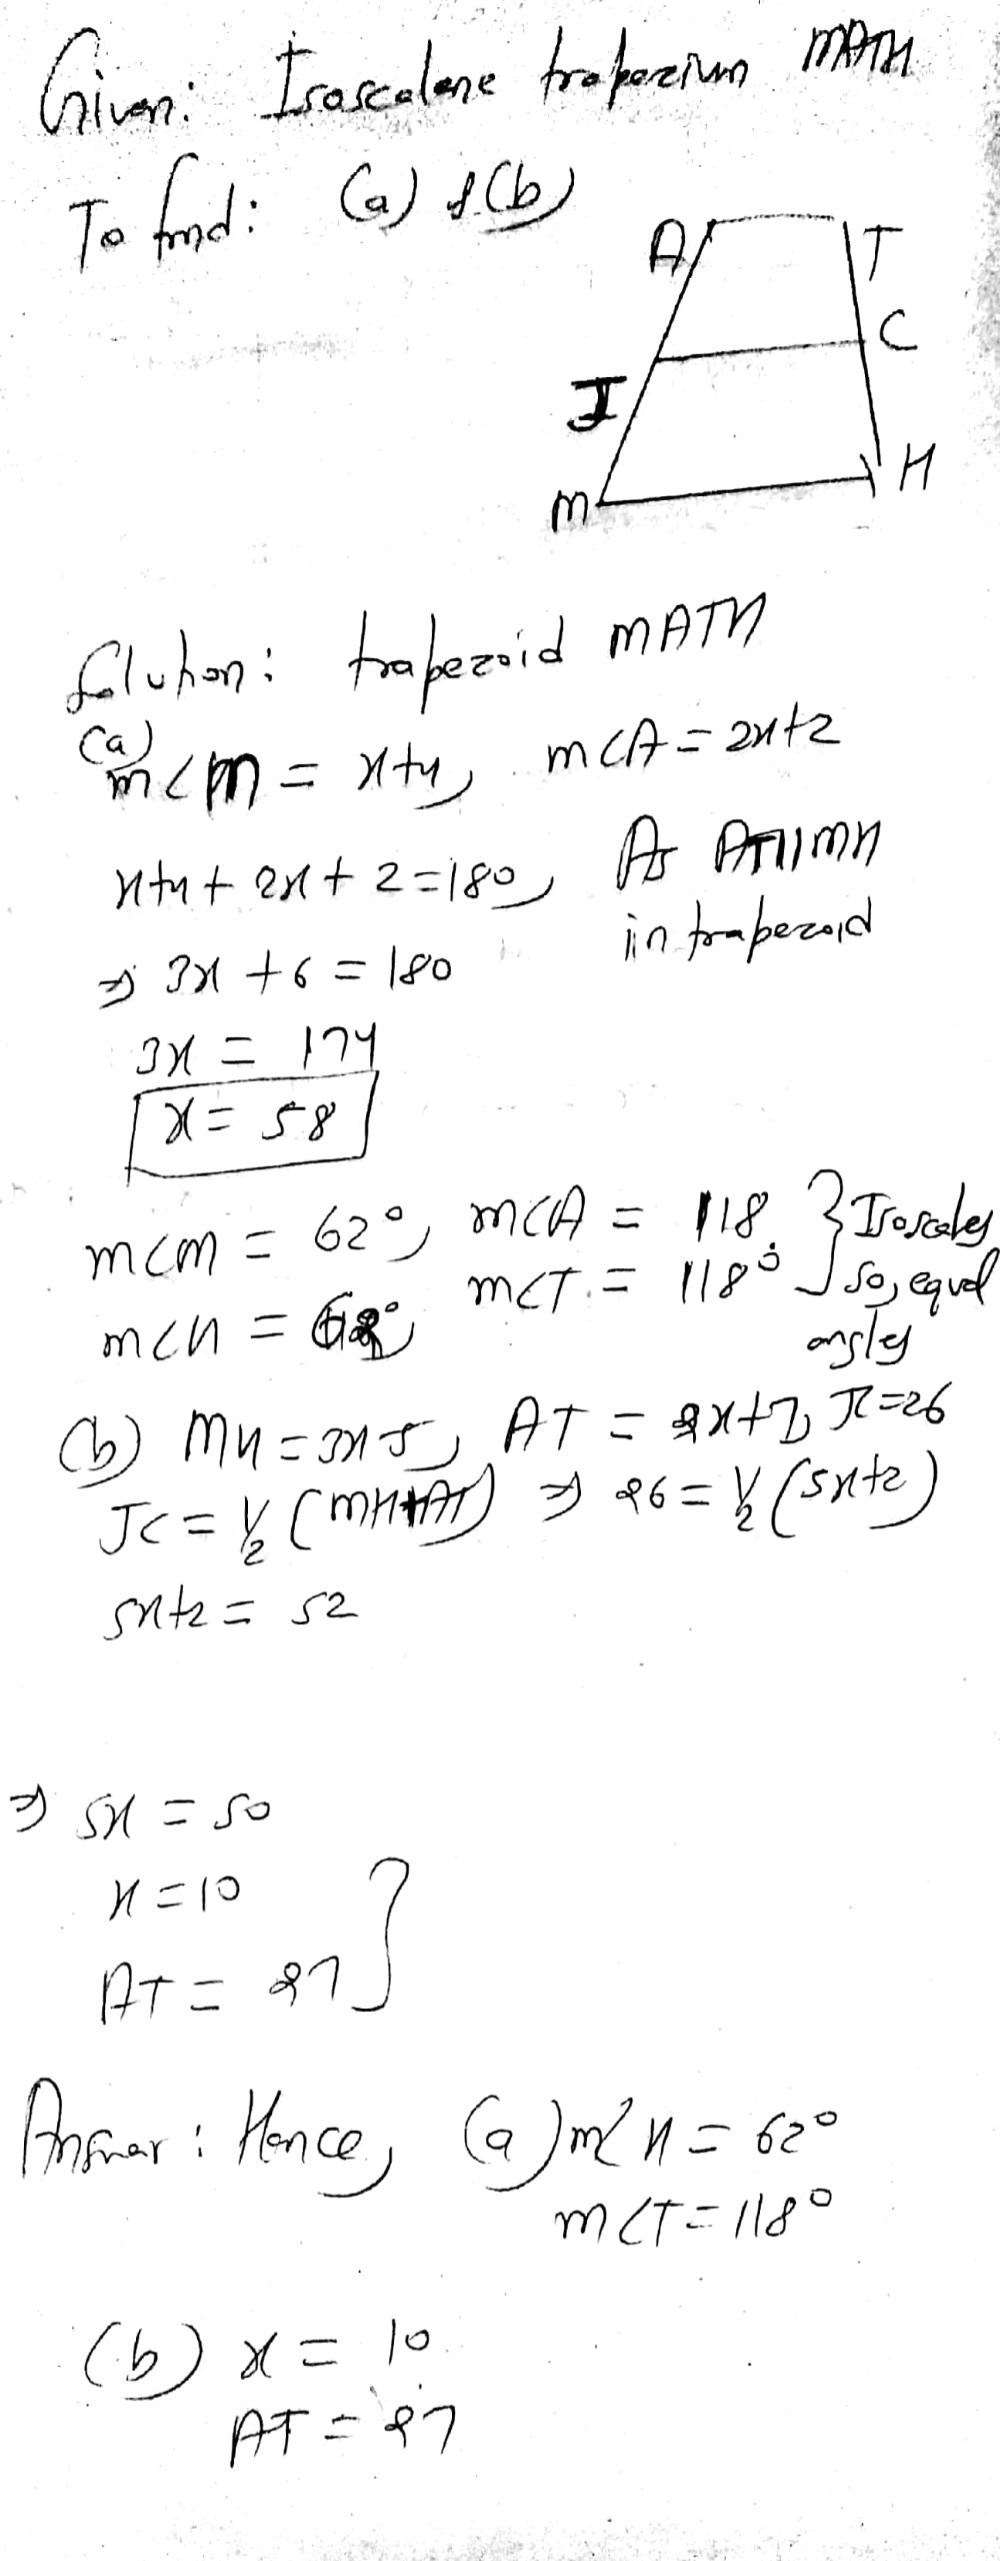 Given: Isoscelene trapezium MATH
To find: (a) & (b)
A
T
C
J
M
H
Solution: trapezoid MATH
(a)
m<M = x+4, m<A = 2x+2
x+4+2x+2=180, As AT||MH
in trapezoid
⇒ 3x+6 = 180
3x = 174
x = 58
m<M = 62°, m<A = 118° } Isosceles
m<H = 62°, m<T = 118° so, equal
angles
(b) MH=3x-5, AT = 2x+7, JC=26
JC = 1/2 (MH+AT) ⇒ 26 = 1/2 (5x+2)
5x+2 = 52
⇒ 5x = 50
x = 10
AT = 27 }
Answer: Hence, (a) m<H = 62°
m<T = 118°
(b) x = 10
AT = 27